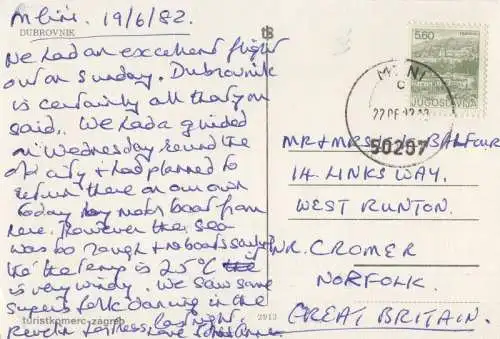 Mlini. 19/6/82.
DUBROVNIK
We had an excellent flight
out on Sunday. Dubrovnik
is certainly all that you
said. We had a guided
on Wednesday round the
old city & had planned to
return there on our own
today by motor boat from
here. However the sea
was too rough & no boats sailed
tho' the temp is 25°C
is very windy. We saw some
superb folk dancing in the
Revelin fortress last night.
Love
turistkomerc-zagreb
2913
5.60
JUGOSLAVIJA
MLINI
50207
MR & MRS BALFOUR
14 LINKS WAY.
WEST RUNTON.
NR. CROMER
NORFOLK.
GREAT BRITAIN.